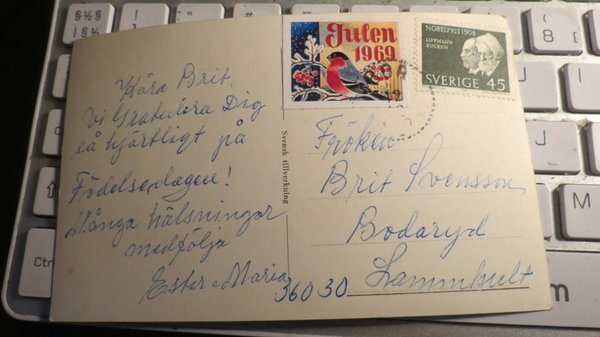 Kära Brit.
Vi Gratulera Dig
så hjärtligt på
Födelsedagen!
Många hälsningar
medfölja
Ester o Maria
Svensk tillverkning
Julen
1969
NOBELPRIS 1908
LIPPMANN
EUCKEN
SVERIGE 45
Fröken
Brit Svensson
Bodaryd
36030 Lammhult
§½
8
M
Ctr